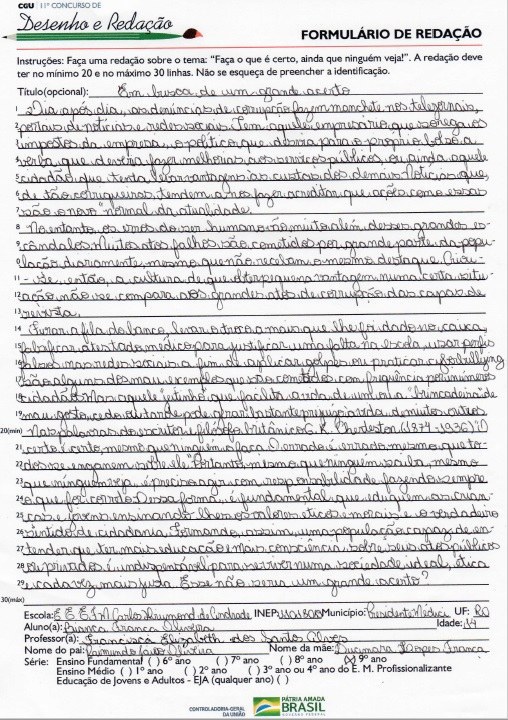 CGU 11º CONCURSO DE
Desenho e Redação
FORMULÁRIO DE REDAÇÃO
Instruções: Faça uma redação sobre o tema: "Faça o que é certo, ainda que ninguém veja!". A redação deve
ter no mínimo 20 e no máximo 30 linhas. Não se esqueça de preencher a identificação.
Título(opcional): Em busca de um grande acerto
1 Dia após dia, as denúncias de corrupção fazem manchete nos telejornais,
2 portais de notícias e redes sociais. Tem aquele empresário que sonega os
3 impostos da empresa, o político que desvia para o próprio bolso a
4 verba que deveria fazer melhorias aos serviços públicos, ou ainda aquele
5 cidadão que tenta levar vantagem às custas dos demais. Notícias que,
6 de tão corriqueiras, tendem a nos fazer acreditar que ações como essas
7 são o novo "normal" da atualidade.
8 No entanto, os erros do ser humano vão muito além desses grandes es-
9 cândalos. Muitos atos falhos são cometidos por grande parte da popu-
10 lação diariamente, mesmo que não recebam o mesmo destaque. Criou-
11 -se, então, a cultura de que obter pequena vantagem numa certa situ-
12 ação não se compara aos grandes atos de corrupção das capas de
13 revista.
14 Furar a fila do banco, levar o troco a mais que lhe foi dado no caixa,
15 falsificar atestado médico para justificar uma falta na escola, usar perfis
16 falsos nas redes sociais a fim de aplicar golpes ou praticar cyberbullying
17 são alguns dos maus exemplos que são cometidos com frequência por inúmeros
18 cidadãos. Mas aquele "jeitinho" que facilita a vida de um ou a "brincadeira" de
19 mau gosto, cedo ou tarde pode gerar bastante prejuízo à vida de muitos outros.
20(min) Nas palavras do escritor e filósofo britânico G. K. Chesterton (1874-1936) "O
21 certo é certo, mesmo que ninguém o faça. O errado é errado, mesmo que to-
22 dos se enganem sobre ele". Portanto, mesmo que ninguém saiba, mesmo
23 que ninguém veja, é preciso agir com responsabilidade fazendo sempre
24 o que for correto. Dessa forma, é fundamental que eduquem as crian-
25 ças e jovens ensinando-lhes os valores éticos, morais e o verdadeiro
26 sentido de cidadania. Formando, assim, uma população capaz de en-
27 tender que ter mais educação e mais consciência sobre seus atos públicos
28 ou privados é indispensável para se viver numa sociedade ideal, ética
29 e cada vez mais justa. Esse não seria um grande acerto?
30(máx)
Escola: E.E.E.F.M Carlos Drummond de Andrade INEP: Município: Presidente Médici UF: RO
Aluno(a): Bianca Franca Oliveira Idade: 14
Professor(a): Francisca Elizabeth dos Santos Alves
Nome do pai: Oliveira Nome da mãe: Lopes Franca
Série: Ensino Fundamental ( ) 6º ano ( ) 7º ano ( ) 8º ano (X) 9º ano
Ensino Médio ( ) 1º ano ( ) 2º ano ( ) 3º ano ou 4º ano do E. M. Profissionalizante
Educação de Jovens e Adultos - EJA (qualquer ano) ( )
CONTROLADORIA-GERAL
DA UNIÃO
PÁTRIA AMADA
BRASIL
GOVERNO FEDERAL